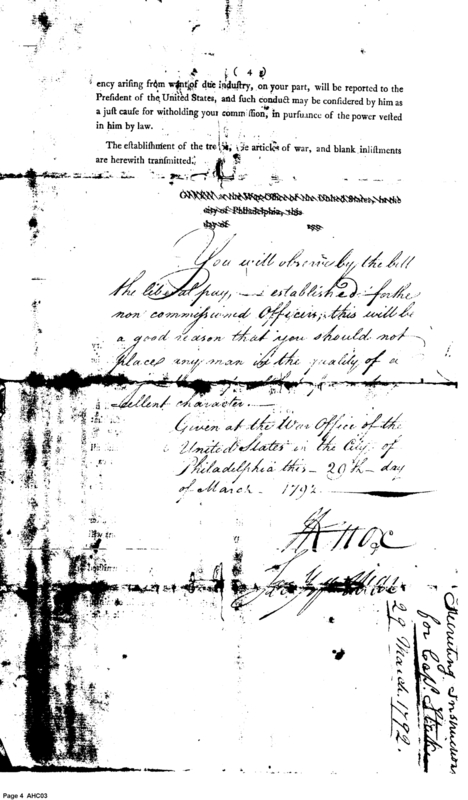 ( 4 )
ency arising from want of due industry, on your part, will be reported to the
President of the United States, and such conduct may be considered by him as
a just cause for witholding your commission, in pursuance of the power vested
in him by law.
The establishment of the articles of war, and blank inlistments
are herewith transmitted.
GIVEN at the War-Office of the United States, in the
city of Philadelphia, this
day of 179
You will observe by the bill
the liberal pay, established for the
non commissioned Officers; this will be
a good reason that you should not
place any man in the quality of a
character.
Given at the War Office of the
United States in the City of
Philadelphia this 29th day
of March 1792
HKnox
Recruiting Instructions
for Capt. Stake
29 March 1792.
Page 4 AHC03